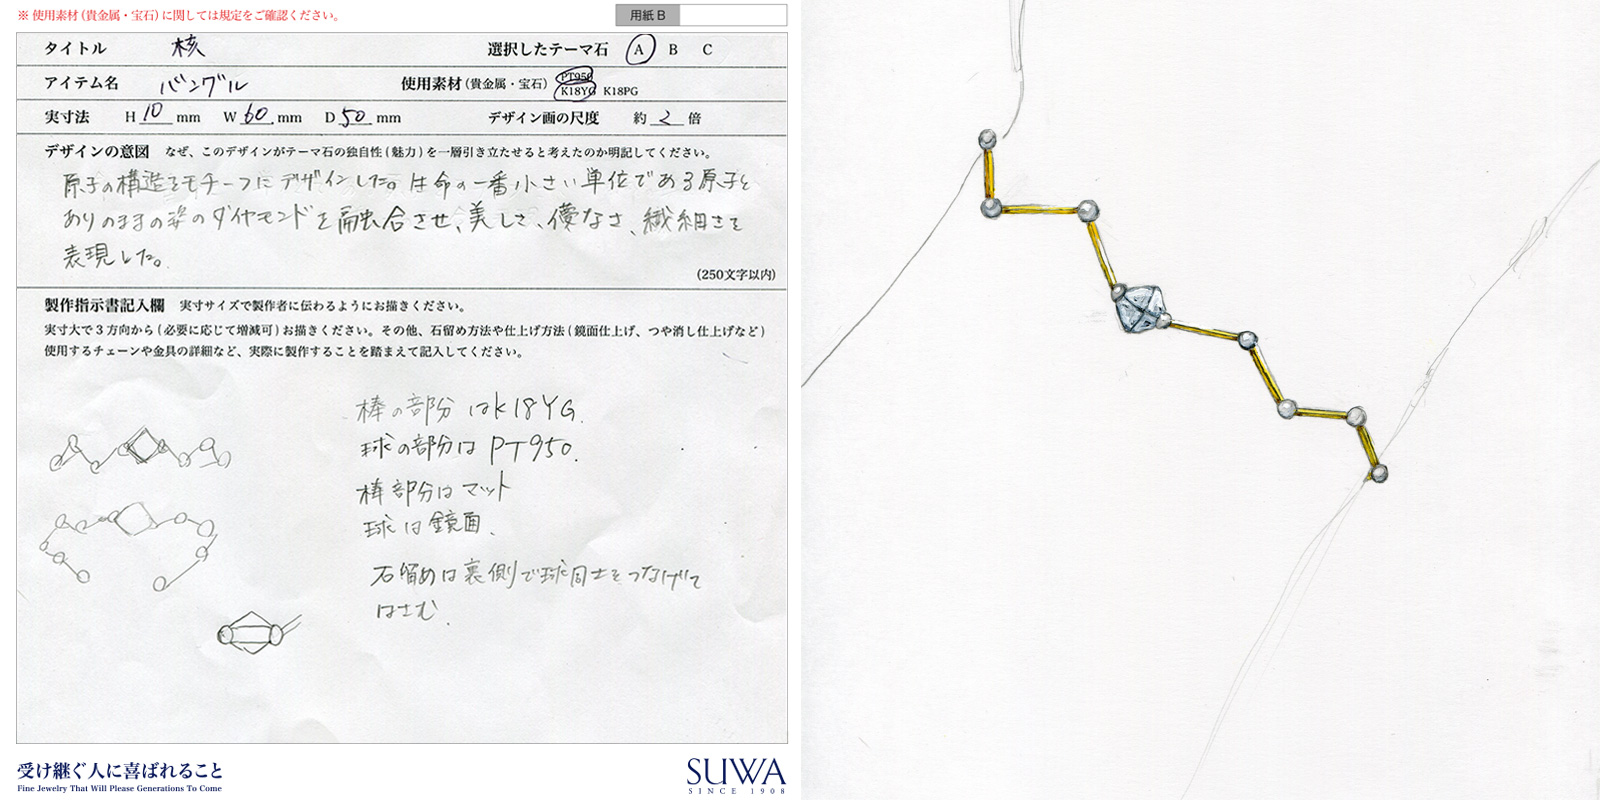 ※ 使用素材(貴金属・宝石)に関しては規定をご確認ください。
用紙 B
タイトル 核 選択したテーマ石 A B C
アイテム名 バングル 使用素材(貴金属・宝石) PT950 K18YG K18PG
実寸法 H 10 mm W 60 mm D 50 mm デザイン画の尺度 約 2 倍
デザインの意図 なぜ、このデザインがテーマ石の独自性(魅力)を一層引き立たせると考えたのか明記してください。
原子の構造をモチーフにデザインした。生命の一番小さい単位である原子と
ありのままの姿のダイヤモンドを融合させ、美しさ、儚なさ、繊細さを
表現した。
(250文字以内)
製作指示書記入欄 実寸サイズで製作者に伝わるようにお描きください。
実寸大で3方向から(必要に応じて増減可)お描きください。その他、石留め方法や仕上げ方法(鏡面仕上げ、つや消し仕上げなど)
使用するチェーンや金具の詳細など、実際に製作することを踏まえて記入してください。
棒の部分はK18YG.
球の部分はPT950.
棒部分はマット
球は鏡面.
石留めは裏側で球同士をつなげて
はさむ.
受け継ぐ人に喜ばれること
Fine Jewelry That Will Please Generations To Come
SUWA
SINCE 1908